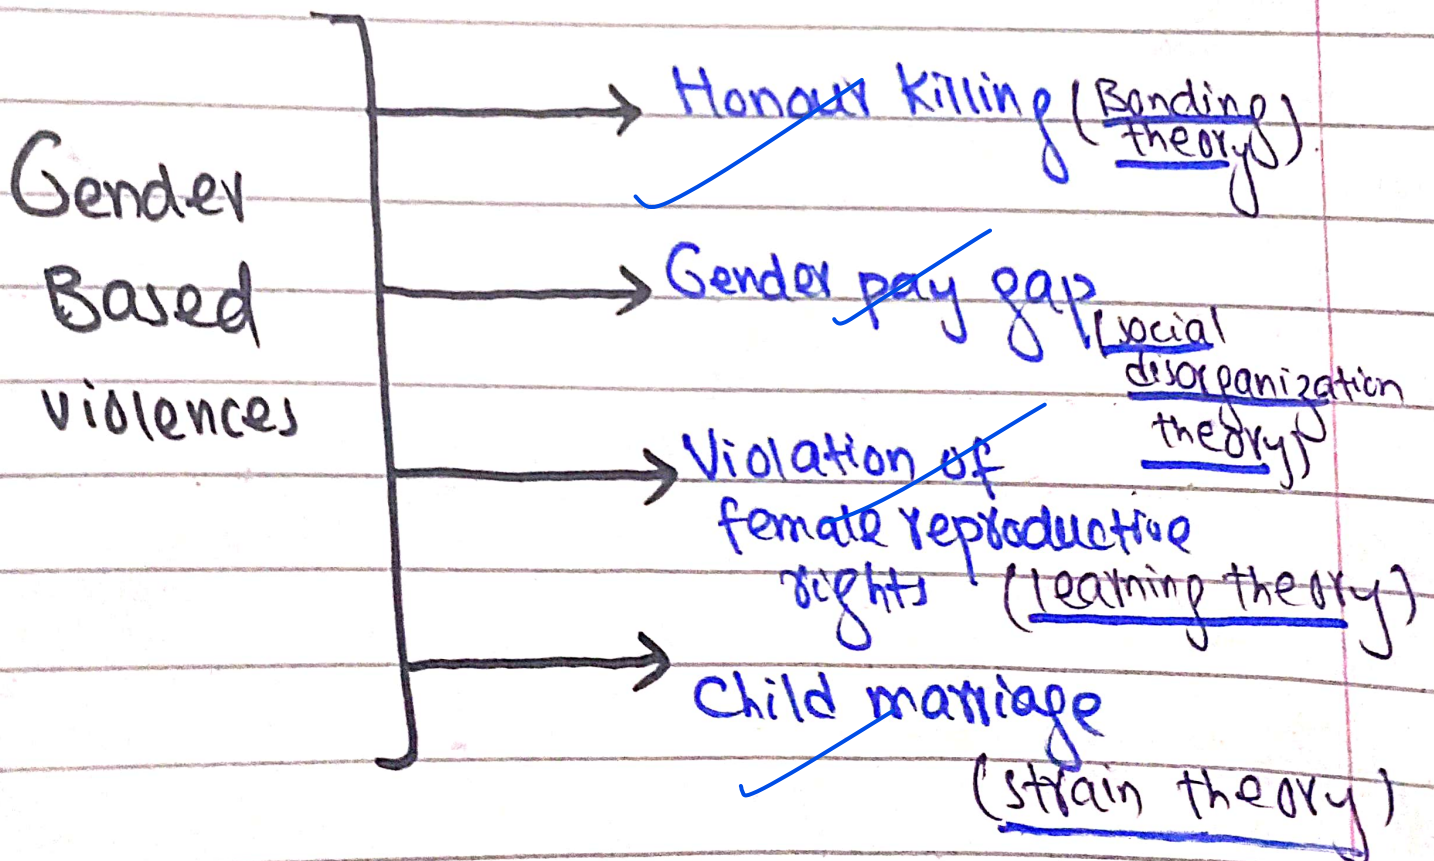 Gender
Based
violences
Honour Killing (Bonding
theory).
Gender pay gap
(social
disorganization
theory)
Violation of
female reproductive
rights (learning theory)
Child marriage
(strain theory)